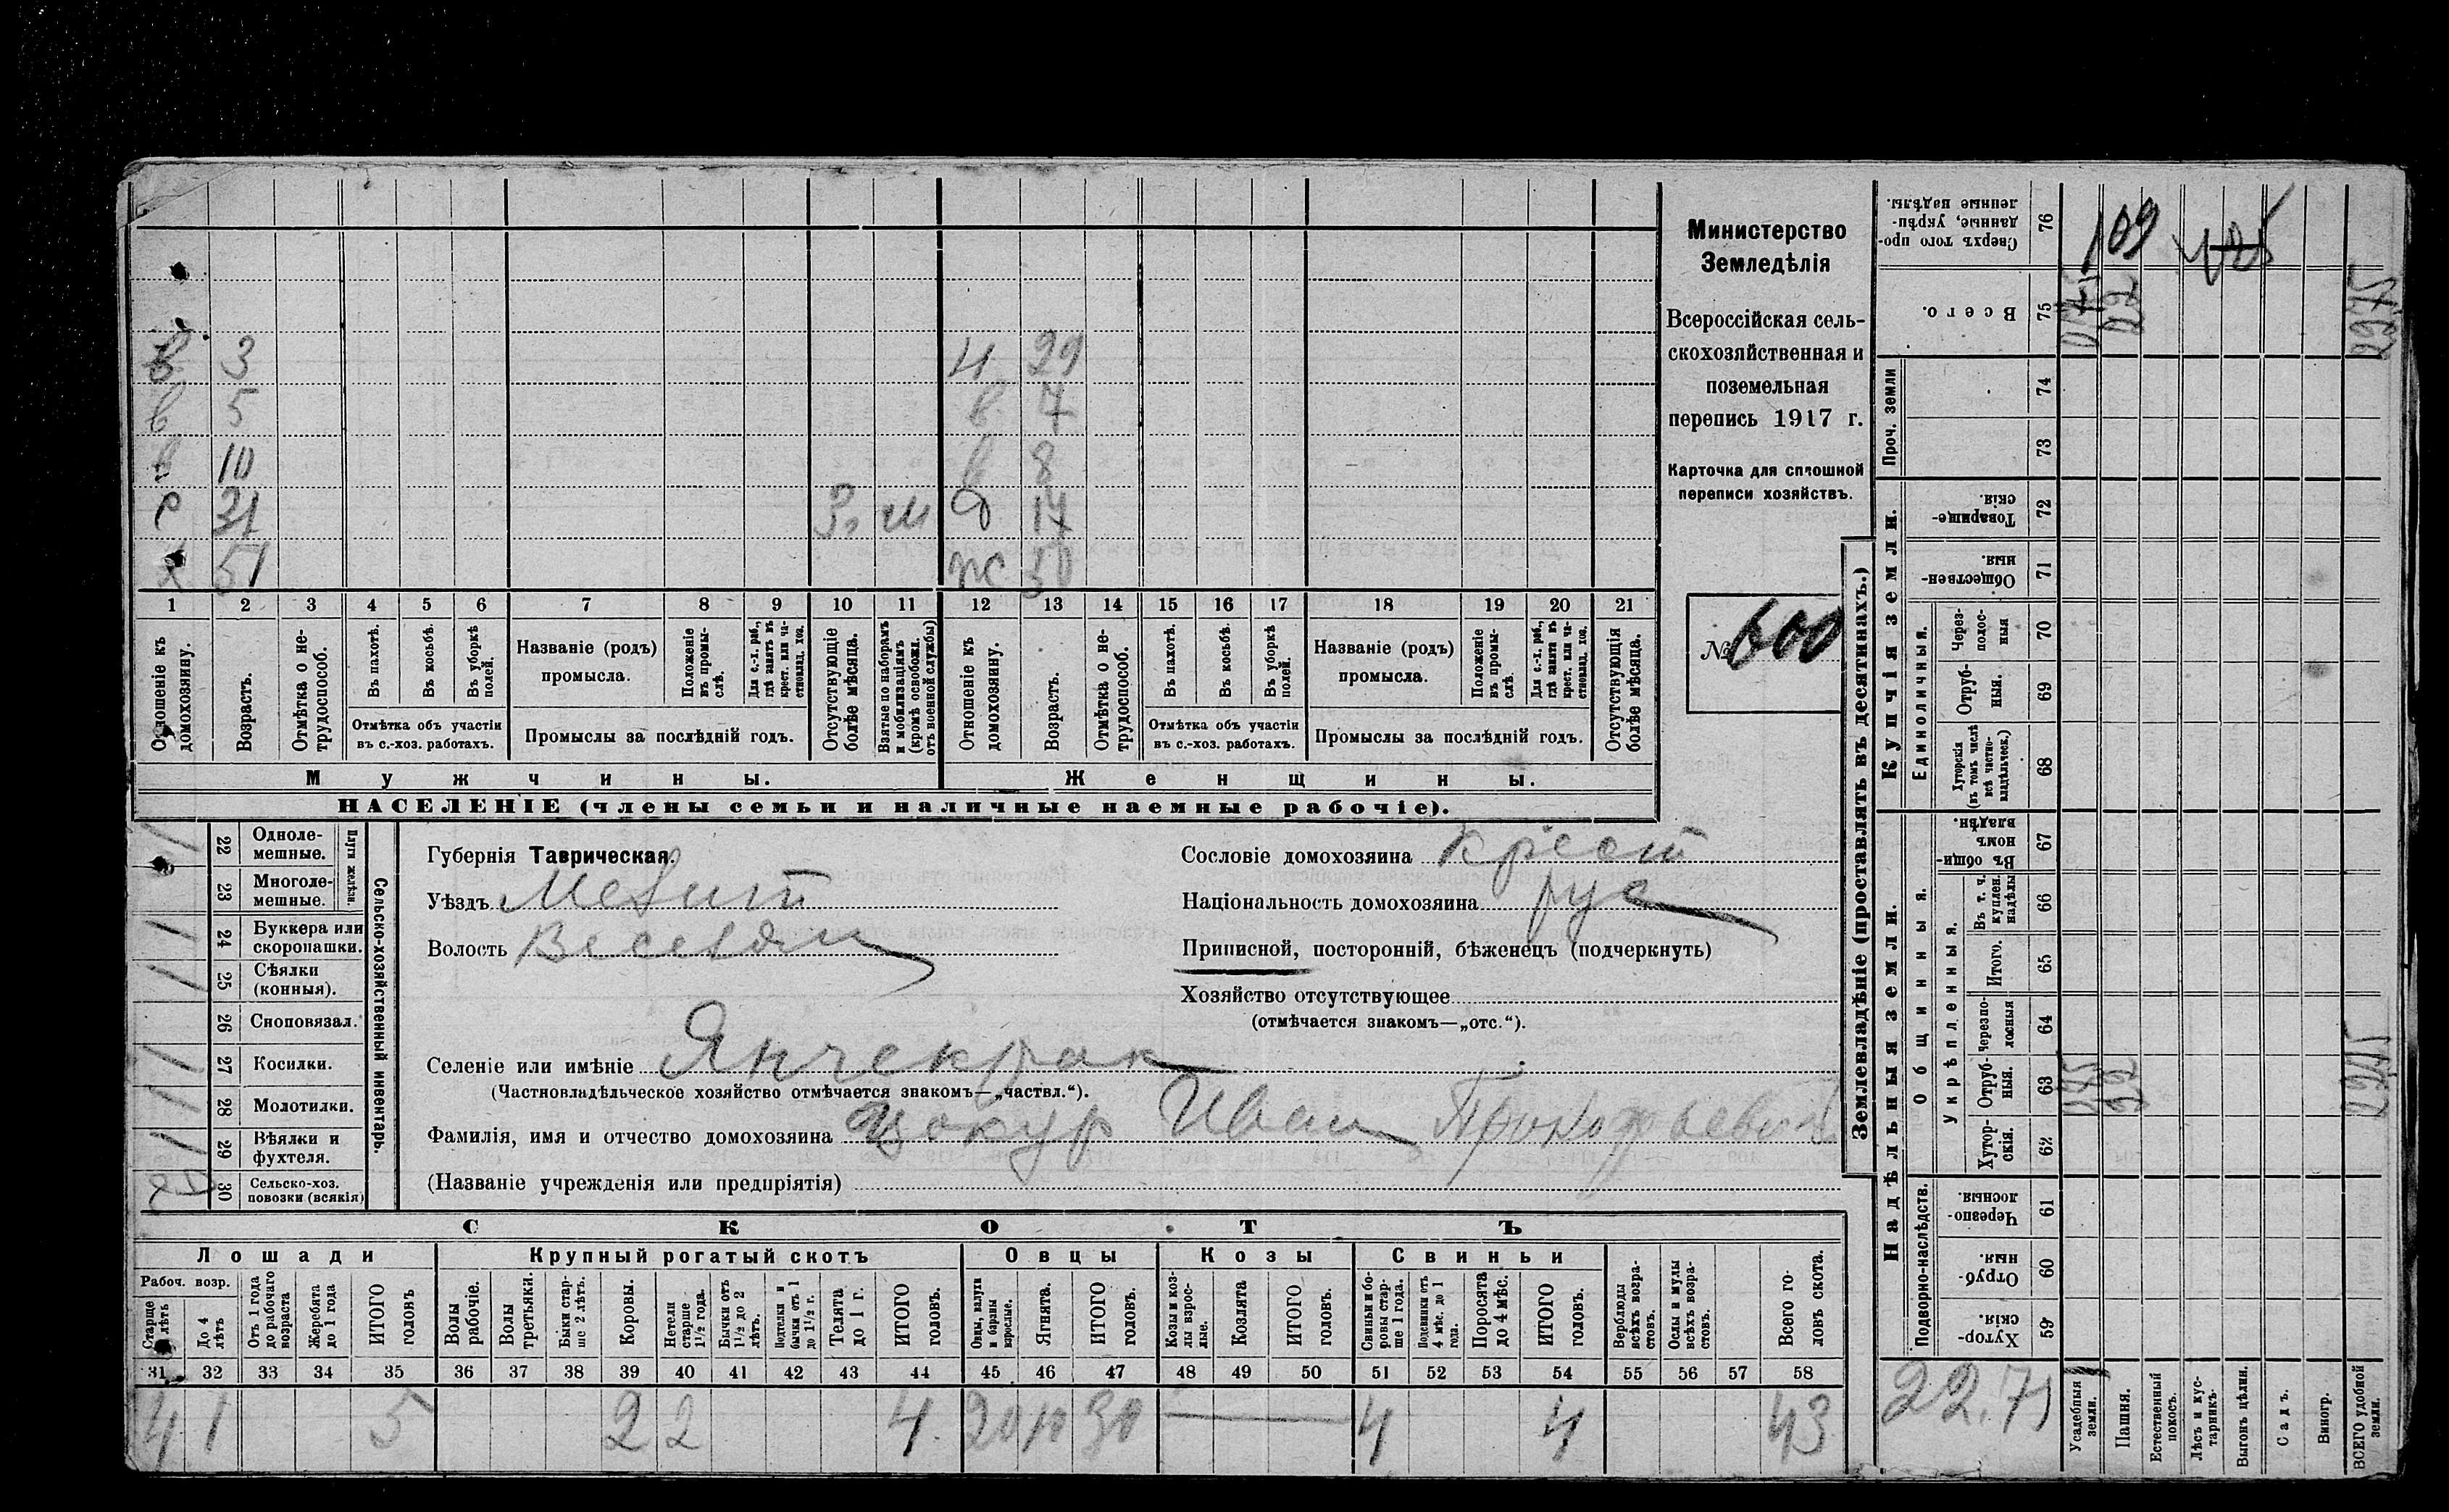 в 3 н 29
в 5 в 7
в 10 в 8
с 31 З. м д 17
х 51 ж 50
1 2 3 4 5 6 7 8 9 10 11 12 13 14 15 16 17 18 19 20 21
Отношеніе къ домохозяину.
Возрастъ.
Отмѣтка о нетрудоспособ.
Въ пахотѣ.
Въ косьбѣ.
Въ уборкѣ полей.
Отмѣтка объ участіи въ с.-хоз. работахъ.
Названіе (родъ) промысла.
Положеніе въ промыслѣ.
Для с.-х. раб., гдѣ занятъ въ крест. или частновлад. хоз.
Промыслы за послѣдній годъ.
Отсутствующіе болѣе мѣсяца.
Взятые по наборамъ и мобилизаціямъ (кромѣ освобожд. отъ военной службы)
Отношеніе къ домохозяину.
Возрастъ.
Отмѣтка о нетрудоспособ.
Въ пахотѣ.
Въ косьбѣ.
Въ уборкѣ полей.
Отмѣтка объ участіи въ с.-хоз. работахъ.
Названіе (родъ) промысла.
Положеніе въ промыслѣ.
Для с.-х. раб., гдѣ занята въ крест. или частновлад. хоз.
Промыслы за послѣдній годъ.
Отсутствующія болѣе мѣсяца.
Мужчины.
Женщины.
НАСЕЛЕНІЕ (члены семьи и наличные наемные рабочіе).
Министерство
Земледѣлія
Всероссійская сель-
скохозяйственная и
поземельная
перепись 1917 г.
Карточка для сплошной
переписи хозяйствъ.
№ 600
Сельско-хозяйственный инвентарь.
Плуги желѣзн.
22 Одноле-мешные. 1
23 Многоле-мешные.
24 Буккера или скоропашки. 1
25 Сѣялки (конныя). 1
26 Сноповязал.
27 Косилки. 1
28 Молотилки. 1
29 Вѣялки и фухтеля. 1
30 Сельско-хоз. повозки (всякія)
Губернія Таврическая.
Уѣздъ Мелит
Волость Веселян
Селеніе или имѣніе Янчекрак
(Частновладѣльческое хозяйство отмѣчается знакомъ—„частвл.“).
Фамилія, имя и отчество домохозяина Цокур Иван Прокофьевич
(Названіе учрежденія или предпріятія)
Сословіе домохозяина крест
Національность домохозяина рус
Приписной, посторонній, бѣженецъ (подчеркнуть)
Хозяйство отсутствующее
(отмѣчается знакомъ—„отс.“).
СКОТЪ
Лошади Крупный рогатый скотъ Овцы Козы Свиньи
Рабоч. возр.
Старше 4 лѣтъ
До 4 лѣтъ
Отъ 1 года до рабочаго возраста
Жеребята до 1 года
ИТОГО головъ
Волы рабочіе.
Волы третьяки.
Быки старше 2 лѣтъ.
Коровы.
Нетели старше 1½ года.
Бычки отъ 1½ до 2 лѣтъ.
Подтелки и бычки отъ 1 до 1½ г.
Телята до 1 г.
ИТОГО головъ.
Овцы, валухи и бараны взрослые.
Ягнята.
ИТОГО головъ.
Козы и козлы взрослые.
Козлята
ИТОГО головъ.
Свиньи и боровы старше 1 года.
Подсвинки отъ 4 мѣс. до 1 года.
Поросята до 4 мѣс.
ИТОГО головъ.
Верблюды всѣхъ возрастовъ.
Ослы и мулы всѣхъ возрастовъ.
Всего головъ скота.
31 32 33 34 35 36 37 38 39 40 41 42 43 44 45 46 47 48 49 50 51 52 53 54 55 56 57 58
4 1 5 2 2 4 20 10 30 4 4 43
Землевладѣніе (проставлять въ десятинахъ.)
Надѣльныя земли.
Купчія земли.
Проч. земли
Сверхъ того проданные, укрѣпленные надѣлы. 76
Всего. 75
74
73
Товарищескія. 72
Общественныя. 71
Единоличныя.
Черезполосныя 70
Отрубныя. 69
Хуторскія (въ томъ числѣ всѣ частновладѣльческ.) 68
Общинныя.
Въ общинномъ владѣн. 67
Укрѣпленныя.
Въ т. ч. куплен. надѣлы 66
Итого. 65
Черезполосныя 64
Отрубныя. 63
Хуторскія. 62
Подворно-наслѣдств.
Черезполосныя. 61
Отрубныя. 60
Хуторскія. 59
109
22.71
Усадебныя земли.
Пашня.
Естественный покосъ.
Лѣсъ и кустарникъ.
Выгонъ цѣлин.
Садъ.
Виногр.
ВСЕГО удобной земли.